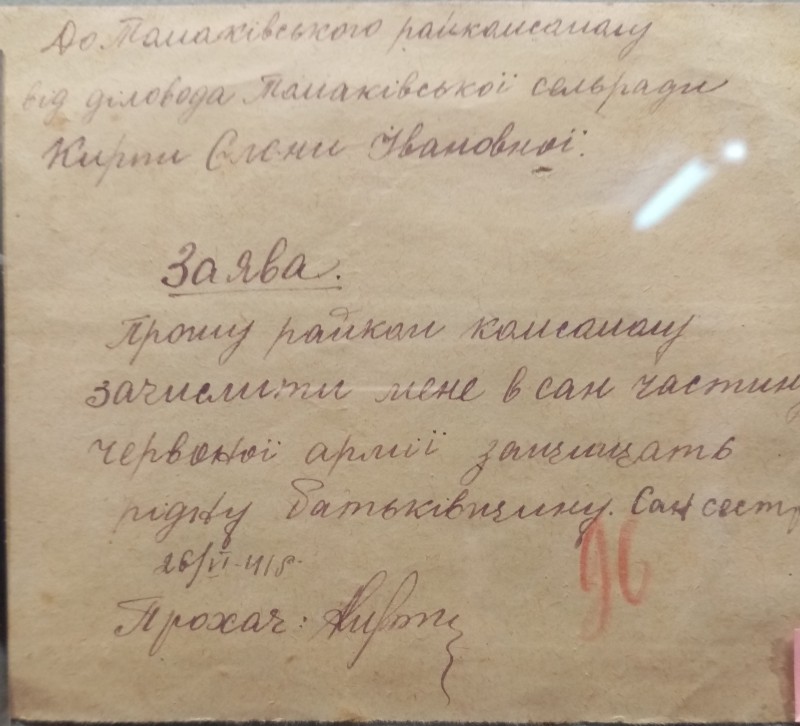 До Томаківського райкомсомолу
від діловода Томаківської сельради
Кирти Єлєни Івановної.
Заява.
Прошу райком комсомолу
зачислити мене в сан частину
червоної армії защищать
рідну батьківщину. Сан сестр
26/VI-41 р.
Прохач:
96